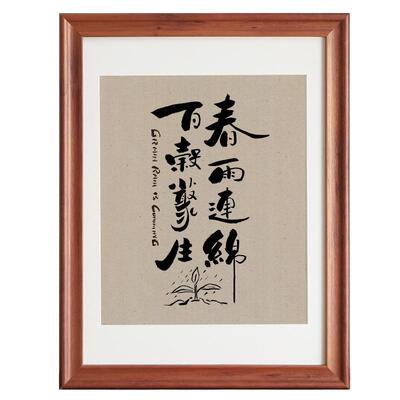 春雨連綿
百穀叢生
GRAIN RAIN IS COMMING